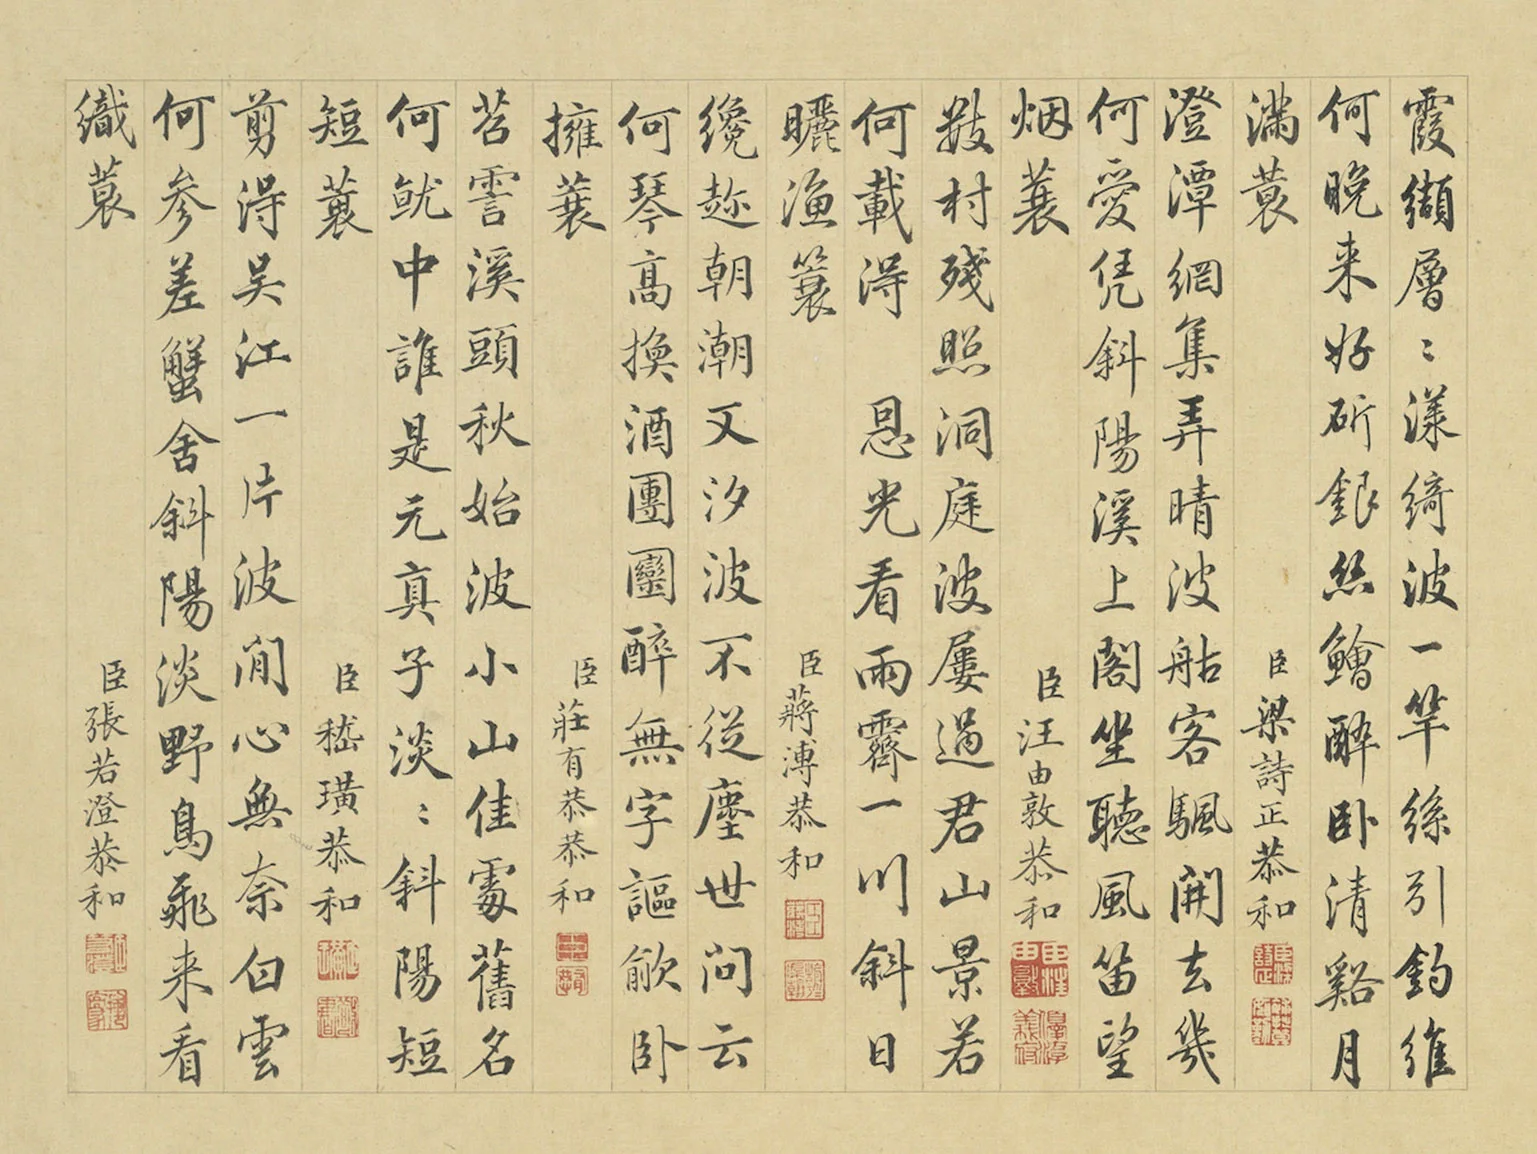 霞纈層〻漾綺波一竿絲引釣維
何晚来好斫銀絲鱠醉卧清谿月
滿蓑
臣梁詩正恭和
澄潭網集弄晴波舴客颿開去幾
何愛凭斜陽溪上閣坐聽風笛望
烟蓑
臣汪由敦恭和
數村殘照洞庭波屢過君山景若
何載得恩光看雨霽一川斜日
曬漁簑
臣蔣溥恭和
纔趂朝潮又汐波不從塵世问云
何琴高換酒團圞醉無字謳歈卧
擁蓑
臣莊有恭恭和
苕霅溪頭秋始波小山佳處舊名
何就中誰是元真子淡〻斜陽短
短蓑
臣嵇璜恭和
剪得吴江一片波閒心無奈白雲
何参差蟹舍斜陽淡野鳥飛来看
織蓑
臣張若澄恭和